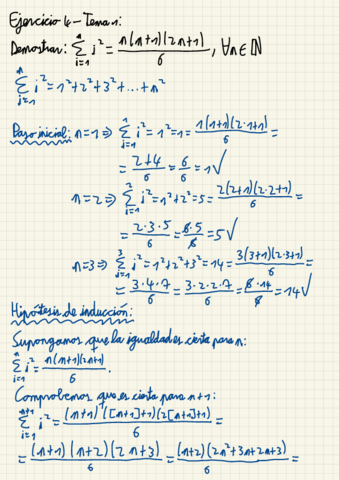 Ejercicio 4 - Tema 1:
Demostrar: ∑_{i=1}^{n} i² = n(n+1)(2n+1)/6, ∀n∈ℕ
∑_{i=1}^{n} i² = 1²+2²+3²+...+n²
Paso inicial: n=1 ⇒ ∑_{i=1}^{1} i² = 1² = 1 = 1(1+1)(2·1+1)/6 =
= 2+4/6 = 6/6 = 1 ✓
n=2 ⇒ ∑_{i=1}^{2} i² = 1²+2² = 5 = 2(2+1)(2·2+1)/6 =
= 2·3·5/6 = 6·5/6 = 5 ✓
n=3 ⇒ ∑_{i=1}^{3} i² = 1²+2²+3² = 14 = 3(3+1)(2·3+1)/6 =
= 3·4·7/6 = 3·2·2·7/6 = 6·14/6 = 14 ✓
Hipótesis de inducción:
Supongamos que la igualdad es cierta para n:
∑_{i=1}^{n} i² = n(n+1)(2n+1)/6.
Comprobemos que es cierta para n+1:
∑_{i=1}^{n+1} i² = (n+1)([n+1]+1)(2[n+1]+1)/6 =
= (n+1)(n+2)(2n+3)/6 = (n+2)(2n²+3n+2n+3)/6 =